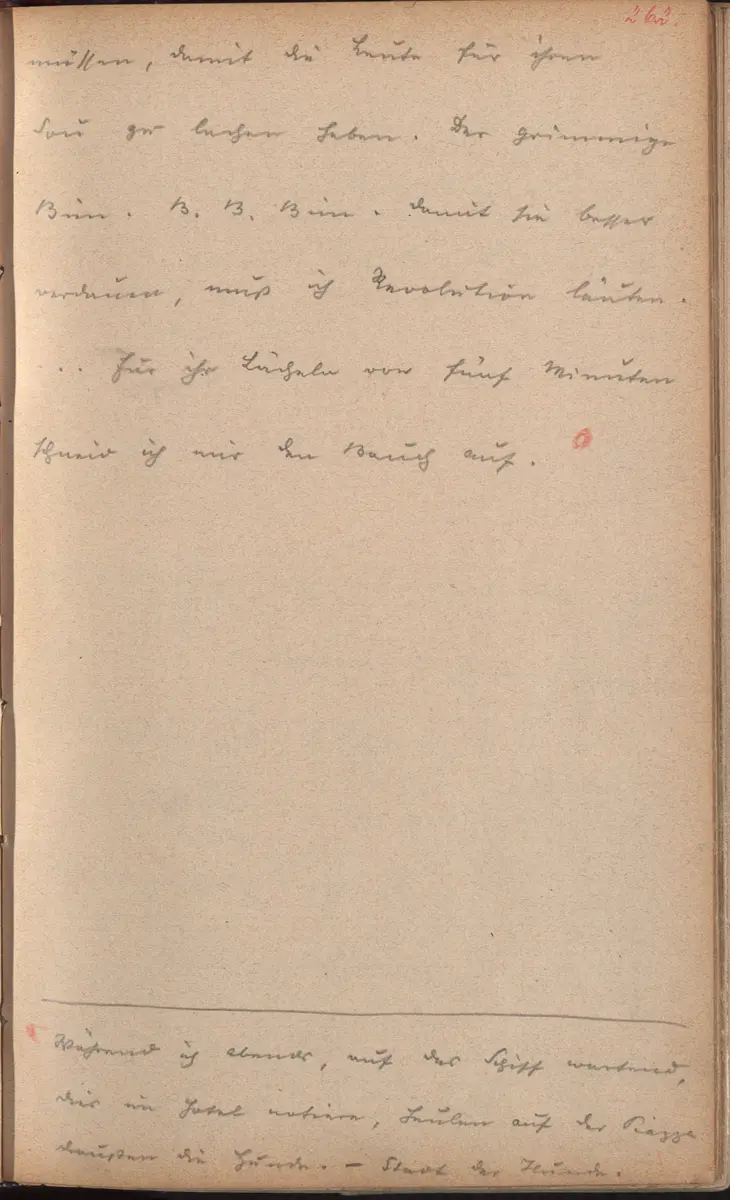 262.
müssen, damit die Leute für ihren
Sou zu lachen haben. Der grimmige
Bim. B. B. Bim. damit sie besser
verdauen, muß ich Revolution läuten.
... Für ihr Lächeln von fünf Minuten
schneid ich mir den Bauch auf.
Während ich abends, auf das Schiff wartend,
dies im Hotel notiere, heulen auf der Piazza
draußen die Hunde. – Stadt der Hunde.